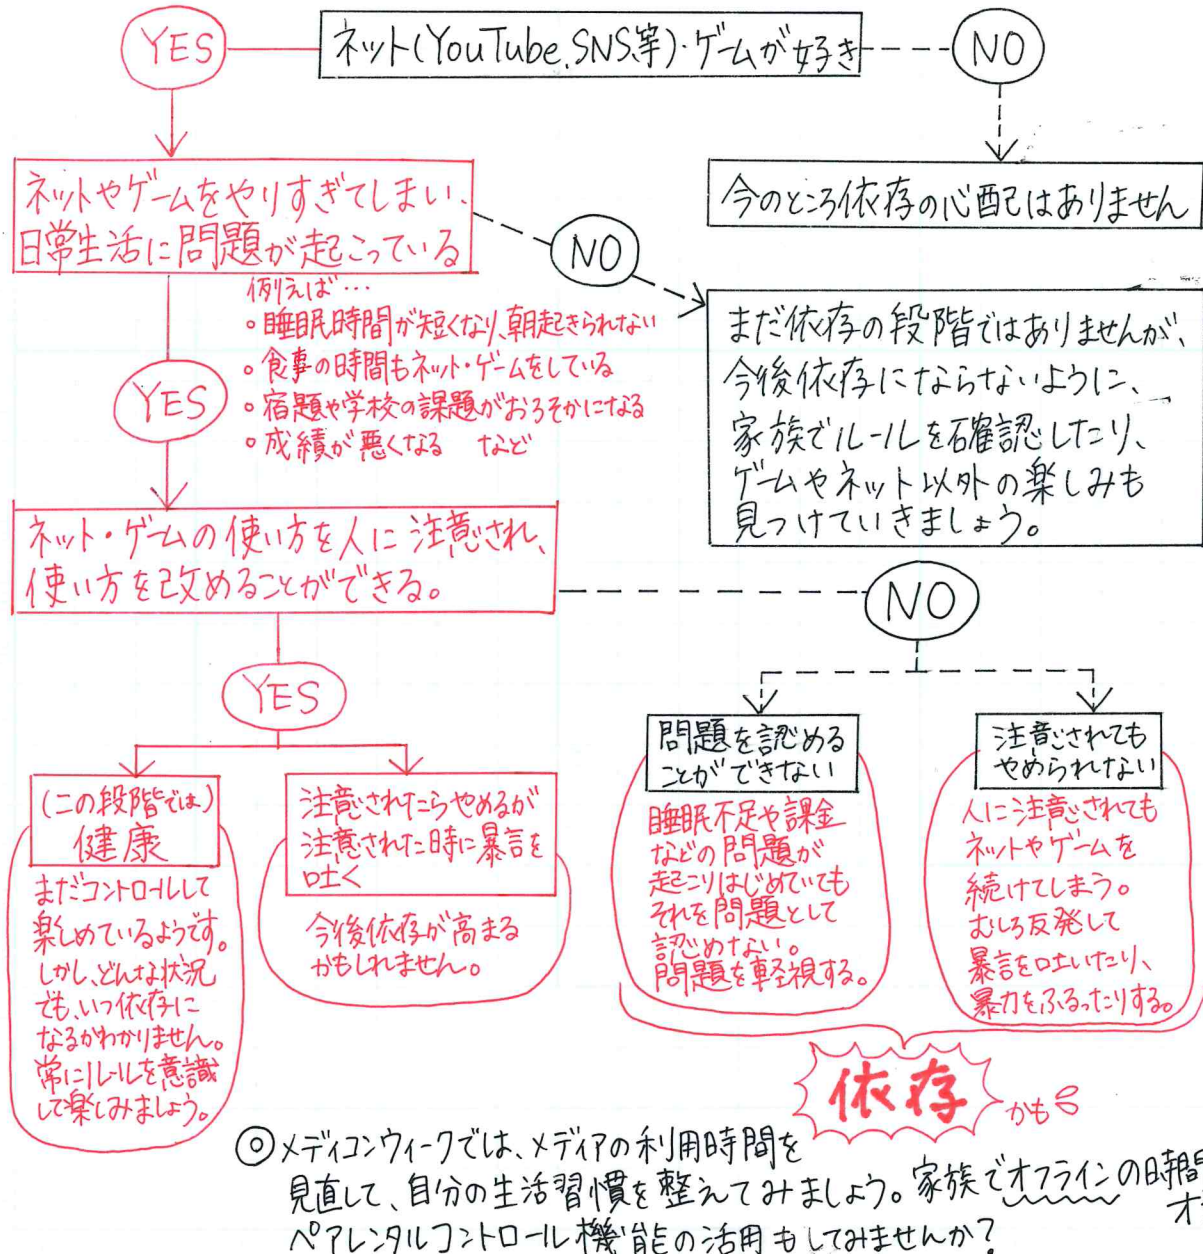 YES
ネット(YouTube,SNS等)・ゲームが好き
NO
ネットやゲームをやりすぎてしまい、
日常生活に問題が起こっている
NO
今のところ依存の心配はありません
例えば…
○睡眠時間が短くなり、朝起きられない
○食事の時間もネット・ゲームをしている
○宿題や学校の課題がおろそかになる
○成績が悪くなる など
YES
まだ依存の段階ではありませんが、
今後依存にならないように、
家族でルールを確認したり、
ゲームやネット以外の楽しみも
見つけていきましょう。
ネット・ゲームの使い方を人に注意され、
使い方を改めることができる。
NO
YES
(この段階では)
健康
まだコントロールして
楽しめているようです。
しかし、どんな状況
でも、いつ依存に
なるかわかりません。
常にルールを意識
して楽しみましょう。
注意されたらやめるが
注意された時に暴言を
吐く
今後依存が高まる
かもしれません。
問題を認める
ことができない
睡眠不足や課金
などの問題が
起こりはじめていても
それを問題として
認めない。
問題を軽視する。
注意されても
やめられない
人に注意されても
ネットやゲームを
続けてしまう。
むしろ反発して
暴言を吐いたり、
暴力をふるったりする。
依存かも
◎メディコンウィークでは、メディアの利用時間を
見直して、自分の生活習慣を整えてみましょう。家族でオフラインの時間
オ
ペアレンタルコントロール機能の活用もしてみませんか?